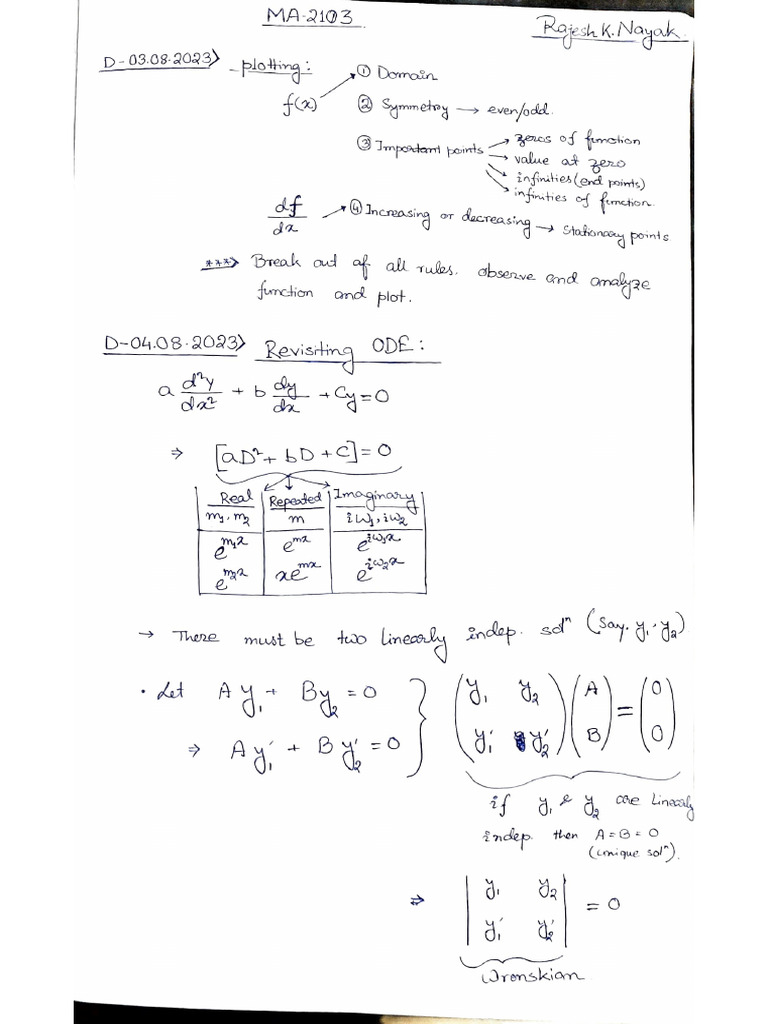 MA-2103
Rajesh K. Nayak.
D-03.08.2023> - plotting:
f(x) → ① Domain
② Symmetry → even/odd.
③ Important points → zeros of function
→ value at zero
→ infinities (end points)
→ infinities of function.
df/dx → ④ Increasing or decreasing → Stationary points
***> Break out of all rules. observe and analyze
function and plot.
D-04.08.2023> Revisiting ODE:
a d²y/dx² + b dy/dx + Cy = 0
⇒ [aD² + bD + C] = 0
Real | Repeated | Imaginary
m₁, m₂ | m | iω₁, iω₂
e^{m₁x} | e^{mx} | e^{iω₁x}
e^{m₂x} | xe^{mx} | e^{iω₂x}
→ There must be two linearly indep. solⁿ (Say. y₁, y₂)
• Let Ay₁ + By₂ = 0
⇒ Ay₁′ + By₂′ = 0
} (y₁ y₂
y₁′ y₂′) (A
B) = (0
0)
if y₁ & y₂ are Linearly
indep. then A = B = 0
(Unique solⁿ).
⇒ |y₁ y₂
y₁′ y₂′| = 0
Wronskian